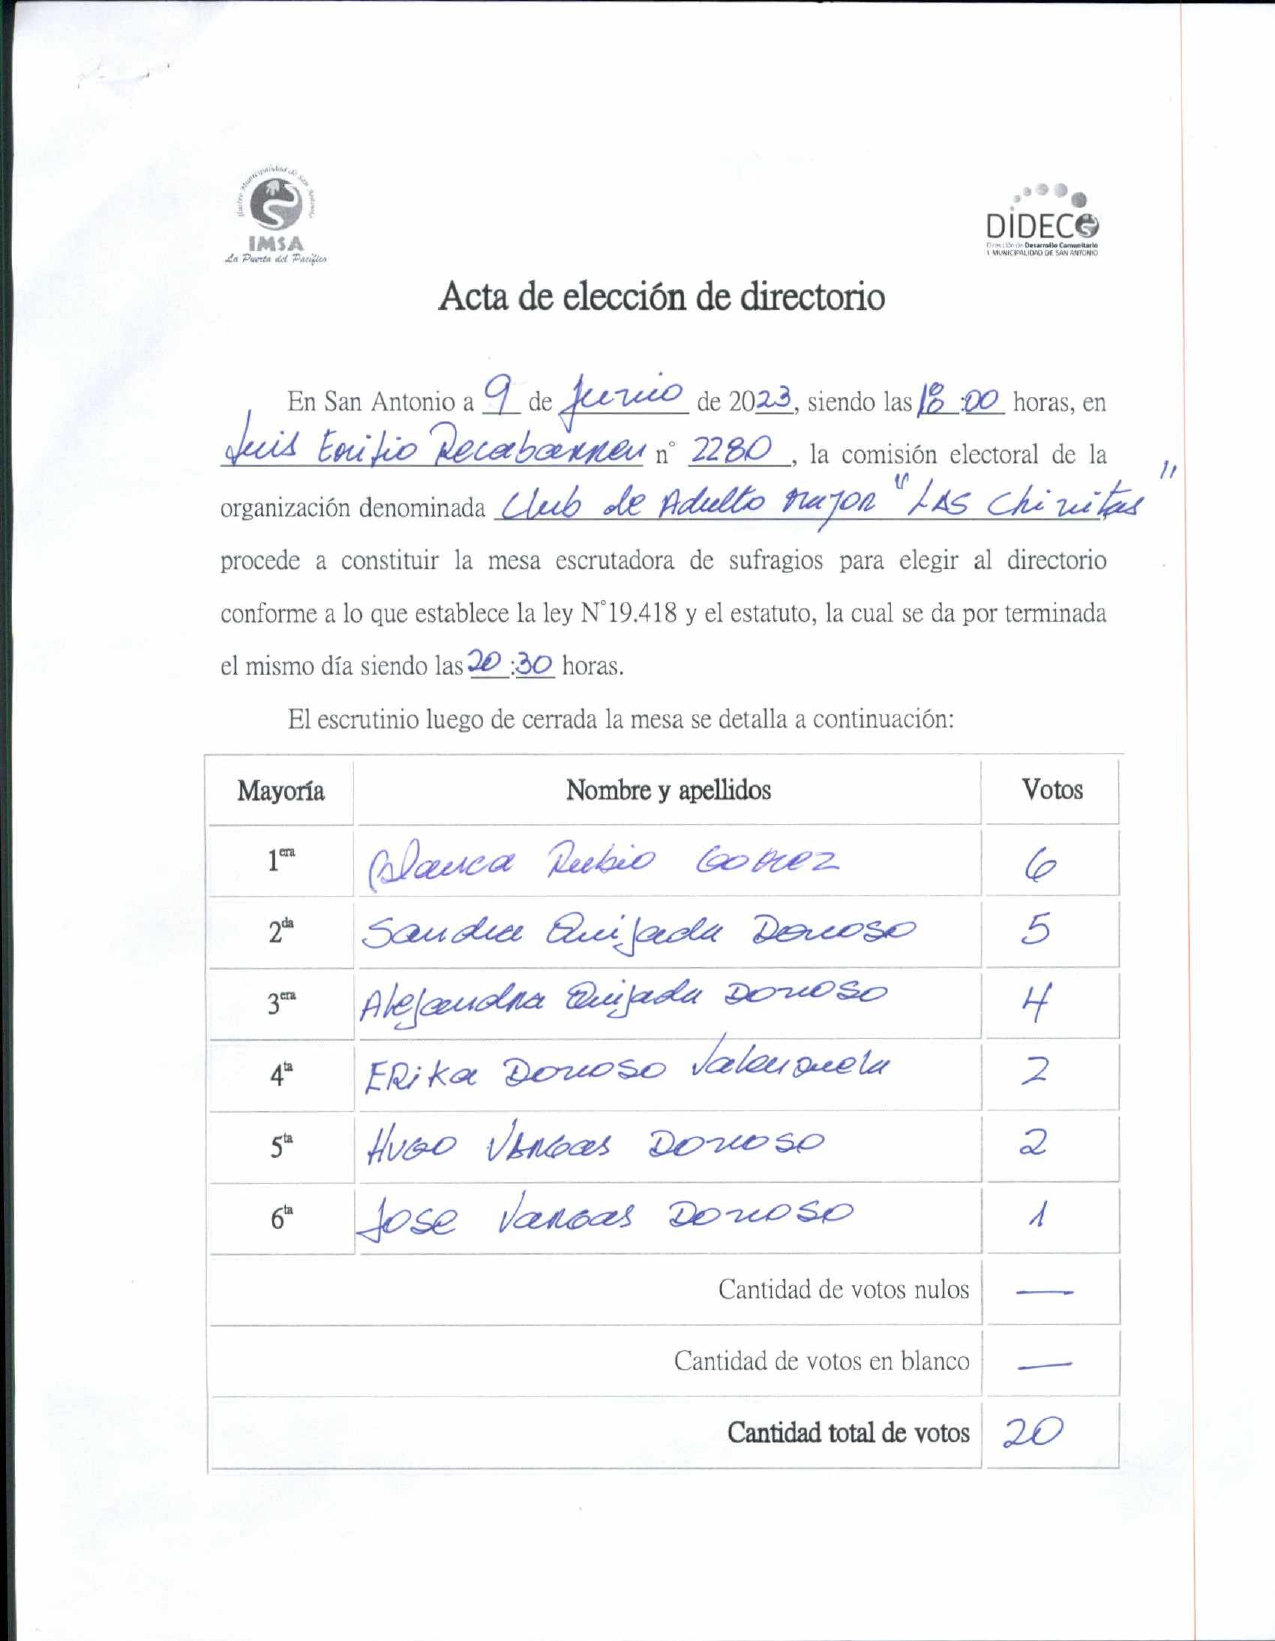 Ilustre Municipalidad de San Antonio
IMSA
La Puerta del Pacífico
DIDECO
Dirección de Desarrollo Comunitario
I. MUNICIPALIDAD DE SAN ANTONIO
Acta de elección de directorio
En San Antonio a 9 de Junio de 2023, siendo las 18:00 horas, en
Luis Emilio Recabarren n° 2280, la comisión electoral de la
organización denominada Club de Adulto mayor "LAS Chinitas"
procede a constituir la mesa escrutadora de sufragios para elegir al directorio
conforme a lo que establece la ley N°19.418 y el estatuto, la cual se da por terminada
el mismo día siendo las 20:30 horas.
El escrutinio luego de cerrada la mesa se detalla a continuación:
Mayoría Nombre y apellidos Votos
1era Blanca Rubio Gomez 6
2da Sandra Quijada Donoso 5
3era Alejandra Quijada Donoso 4
4ta ERika Donoso Valenzuela 2
5ta HUGO VARGAS DONOSO 2
6ta JOSE VARGAS DONOSO 1
Cantidad de votos nulos —
Cantidad de votos en blanco —
Cantidad total de votos 20